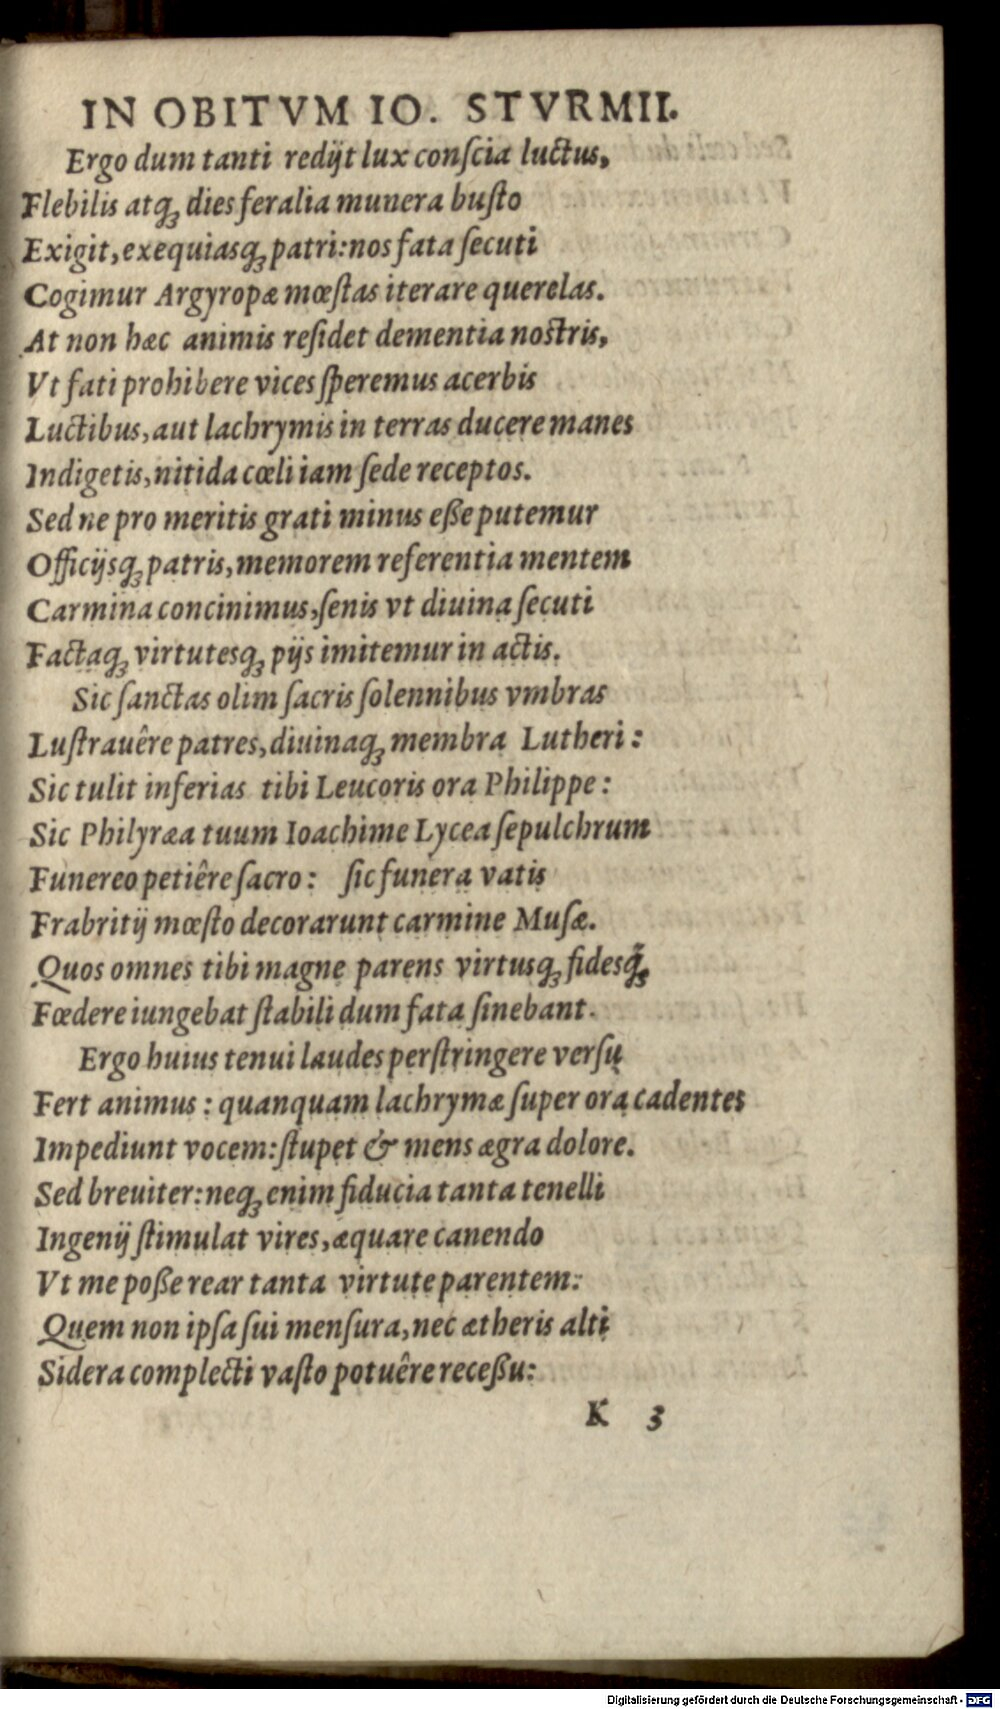 IN OBITVM IO. STVRMII.
Ergo dum tanti redijt lux conſcia luctus,
Flebilis atq́ꝫ dies feralia munera buſto
Exigit, exequiasq́ꝫ patri: nos fata ſecuti
Cogimur Argyropæ mœſtas iterare querelas.
At non hæc animis reſidet dementia noſtris,
Vt fati prohibere vices ſperemus acerbis
Luctibus, aut lachrymis in terras ducere manes
Indigetis, nitida cœli iam ſede receptos.
Sed ne pro meritis grati minus eße putemur
Officijsqꝫ patris, memorem referentia mentem
Carmina concinimus, ſenis vt diuina ſecuti
Factaqꝫ virtutesqꝫ pijs imitemur in actis.
Sic ſanctas olim ſacris ſolennibus vmbras
Luſtrauêre patres, diuinaqꝫ membra Lutheri:
Sic tulit inferias tibi Leucoris ora Philippe:
Sic Philyræa tuum Ioachime Lycea ſepulchrum
Funereo petiêre ſacro: ſic funera vatis
Frabritij mœſto decorarunt carmine Muſæ.
Quos omnes tibi magne parens virtusqꝫ fidesq́ꝫ
Fœdere iungebat ſtabili dum fata ſinebant.
Ergo huius tenui laudes perſtringere verſu
Fert animus: quanquam lachrymæ ſuper ora cadentes
Impediunt vocem: ſtupet & mens ægra dolore.
Sed breuiter: neqꝫ enim fiducia tanta tenelli
Ingenij ſtimulat vires, æquare canendo
Vt me poße rear tanta virtute parentem:
Quem non ipſa ſui menſura, nec ætheris alti
Sidera complecti vaſto potuêre receßu:
K 3
Digitalisierung gefördert durch die Deutsche Forschungsgemeinschaft - DFG